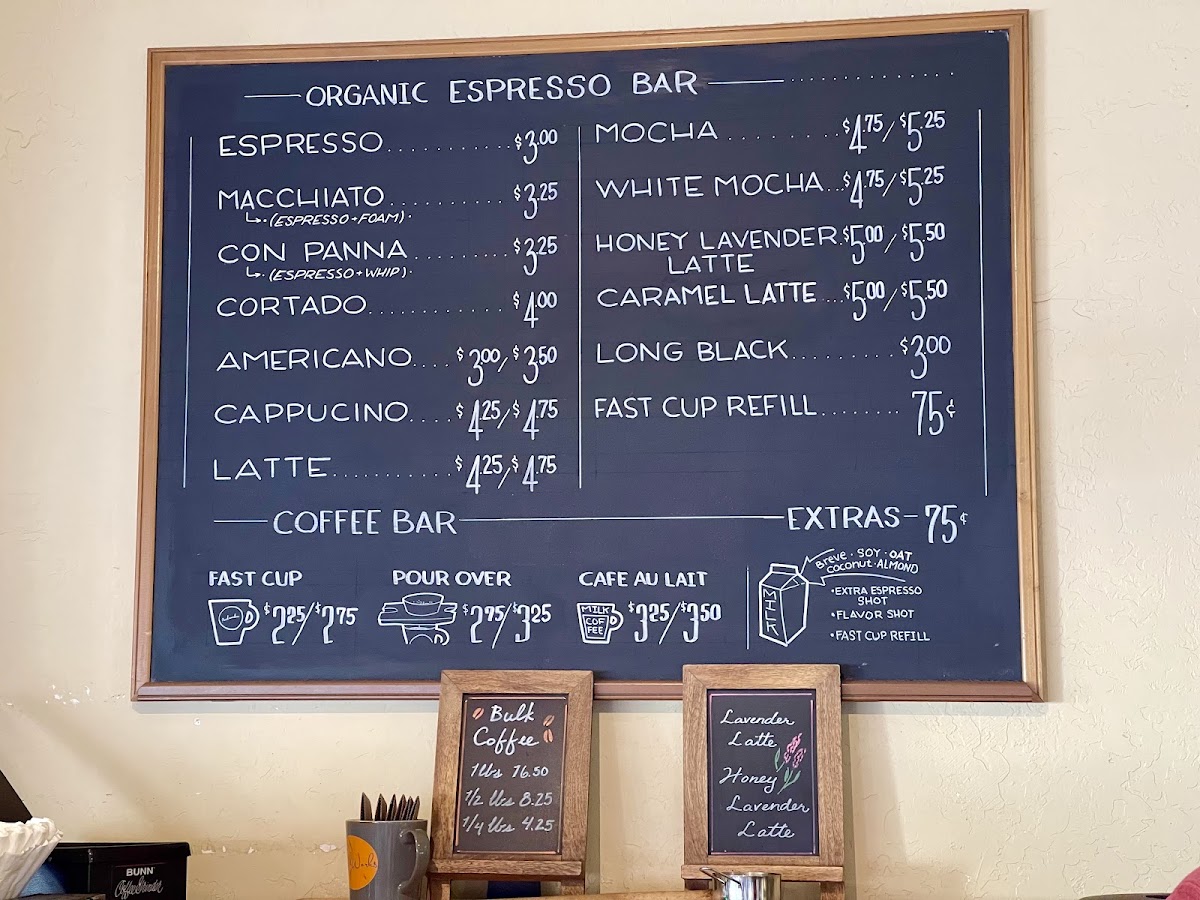 ORGANIC ESPRESSO BAR
ESPRESSO.............$3.00
MACCHIATO...........$3.25
(ESPRESSO+FOAM)
CON PANNA..........$3.25
(ESPRESSO+WHIP)
CORTADO..............$4.00
AMERICANO....$3.00/$3.50
CAPPUCINO....$4.25/$4.75
LATTE..........$4.25/$4.75
MOCHA.........$4.75/$5.25
WHITE MOCHA...$4.75/$5.25
HONEY LAVENDER.$5.00/$5.50
LATTE
CARAMEL LATTE...$5.00/$5.50
LONG BLACK.........$3.00
FAST CUP REFILL........75¢
COFFEE BAR
FAST CUP
$2.25/$2.75
POUR OVER
$2.75/$3.25
CAFE AU LAIT
MILK
COF
FEE
$3.25/$3.50
EXTRAS-75¢
MILK
Breve·SOY·OAT
Coconut·ALMOND
•EXTRA ESPRESSO
SHOT
•FLAVOR SHOT
•FAST CUP REFILL
Bulk
Coffee
1 lbs 16.50
1/2 lbs 8.25
1/4 lbs 4.25
Lavender
Latte
Honey
Lavender
Latte
BUNN